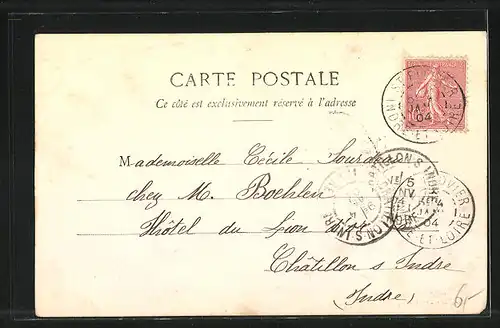 CARTE POSTALE
Ce côté est exclusivement réservé à l'adresse
Mademoiselle Cécile
chez M. Boehlen
Hôtel du Lion d'or
Châtillon s Indre
(Indre)
INDRE-ET-LOIRE
04
ET-LOIRE
04
6,-